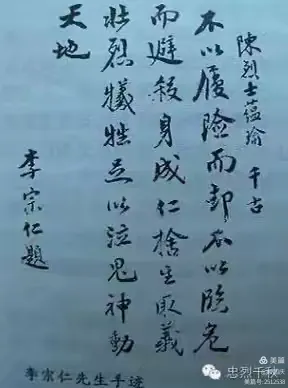 陳烈士蘊瑜 千古
不以履險而卻不以臨危
而避殺身成仁捨生取義
壯烈犧牲足以泣鬼神動
天地
李宗仁題
李宗仁先生手迹
忠烈千秋
美篇
美篇号:2512538